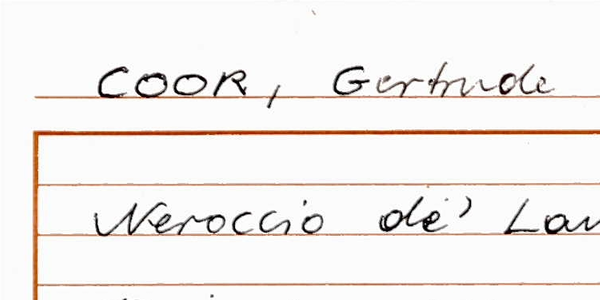 COOR, Gertrude
Neroccio de'